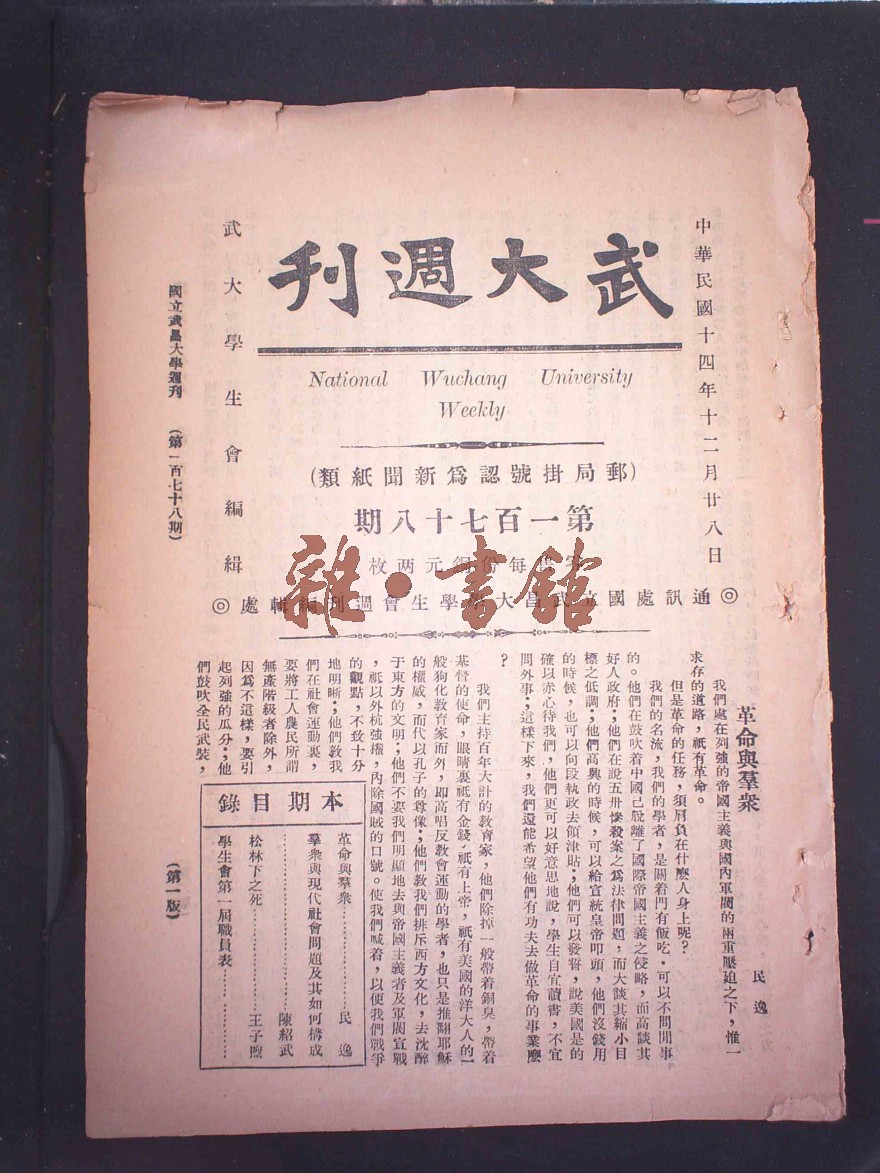 中華民國十四年十二月廿八日
武大週刊
National Wuchang University
Weekly
(郵局掛號認爲新聞紙類)
第一百七十八期
每份銅元两枚
◎通訊處國立武昌大學學生會週刊編輯處◎
武大學生會編輯
國立武昌大學週刊 (第一百七十八期) (第一版)
雜·書館
革命與羣衆
民逸
我們處在列強的帝國主義與國內軍閥的兩重壓迫之下，惟一
求存的道路，祇有革命。
但是革命的任務，須肩負在什麼人身上呢？
我們的名流，我們的學者，是關着門有飯吃，可以不問閒事
的。他們在鼓吹着中國已脫離了國際帝國主義之侵略，而高談其
好人政府；他們在說五卅慘殺案之爲法律問題，而大談其縮小目
標之低調；他們高興的時候，可以給宣統皇帝叩頭，他們沒錢用
的時候，也可以向段執政去領津貼；他們可以發誓，說美國是的
確以赤心待我們，他們更可以好意思地說，學生自宜讀書，不宜
問外事；這樣下來，我們還能希望他們有功夫去做革命的事業麼
？
我們主持百年大計的教育家，他們除掉一般帶着銅臭，帶着
基督的使命，眼睛裏祇有金錢，祇有上帝，祇有美國的洋大人的一
般狗化教育家而外，即高唱反教會運動的學者，也只是推翻耶穌
的權威，而代以孔子的尊像；他們教我們排斥西方文化，去沈醉
于東方的文明；他們不要我們明顯地去與帝國主義者及軍閥宣戰
，祇以外抗強權，內除國賊的口號。使我們喊着，以便我們戰爭
的觀點，不致十分
地明晰；他們教我
們在社會運動裏，
要將工人農民所謂
無產階級者除外，
因爲不這樣，要引
起列強的瓜分；他
們鼓吹全民武裝，
本期目錄
革命與羣衆…………民逸
羣衆與現代社會問題及其如何構成
…………陳紹武
松林下之死…………王子煦
學生會第一屆職員表…………